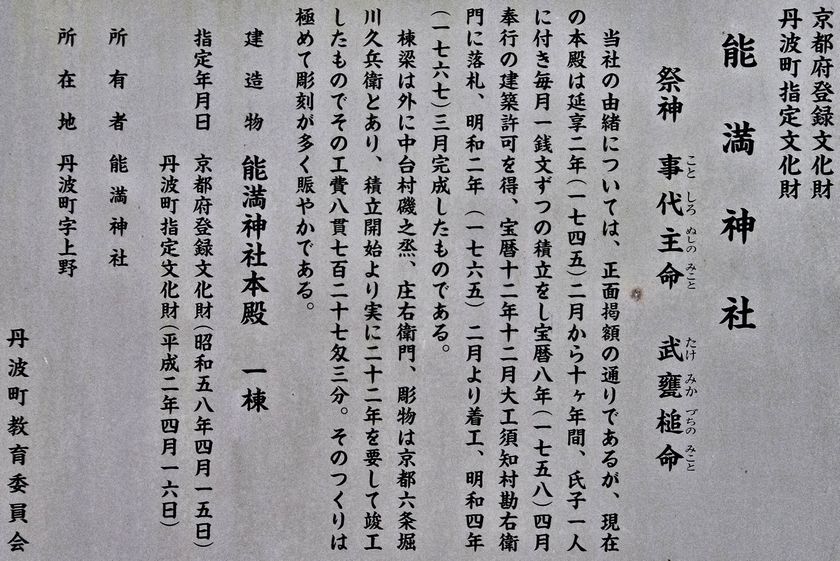 京都府登録文化財
丹波町指定文化財
能満神社
祭神 事代主命 武甕槌命
こと しろ ぬしの みこと たけ みか づちの みこと
当社の由緒については、正面掲額の通りであるが、現在
の本殿は延享二年(一七四五)二月から十ヶ年間、氏子一人
に付き毎月一銭文ずつの積立をし宝暦八年(一七五八)四月
奉行の建築許可を得、宝暦十二年十二月大工須知村勘右衛
門に落札、明和二年(一七六五)二月より着工、明和四年
(一七六七)三月完成したものである。
棟梁は外に中台村磯之烝、庄右衛門、彫物は京都六条堀
川久兵衛とあり、積立開始より実に二十二年を要して竣工
したものでその工費八貫七百二十七匁三分。そのつくりは
極めて彫刻が多く賑やかである。
建造物 能満神社本殿 一棟
指定年月日 京都府登録文化財(昭和五八年四月一五日)
丹波町指定文化財(平成二年四月一六日)
所有者 能満神社
所在地 丹波町字上野
丹波町教育委員会